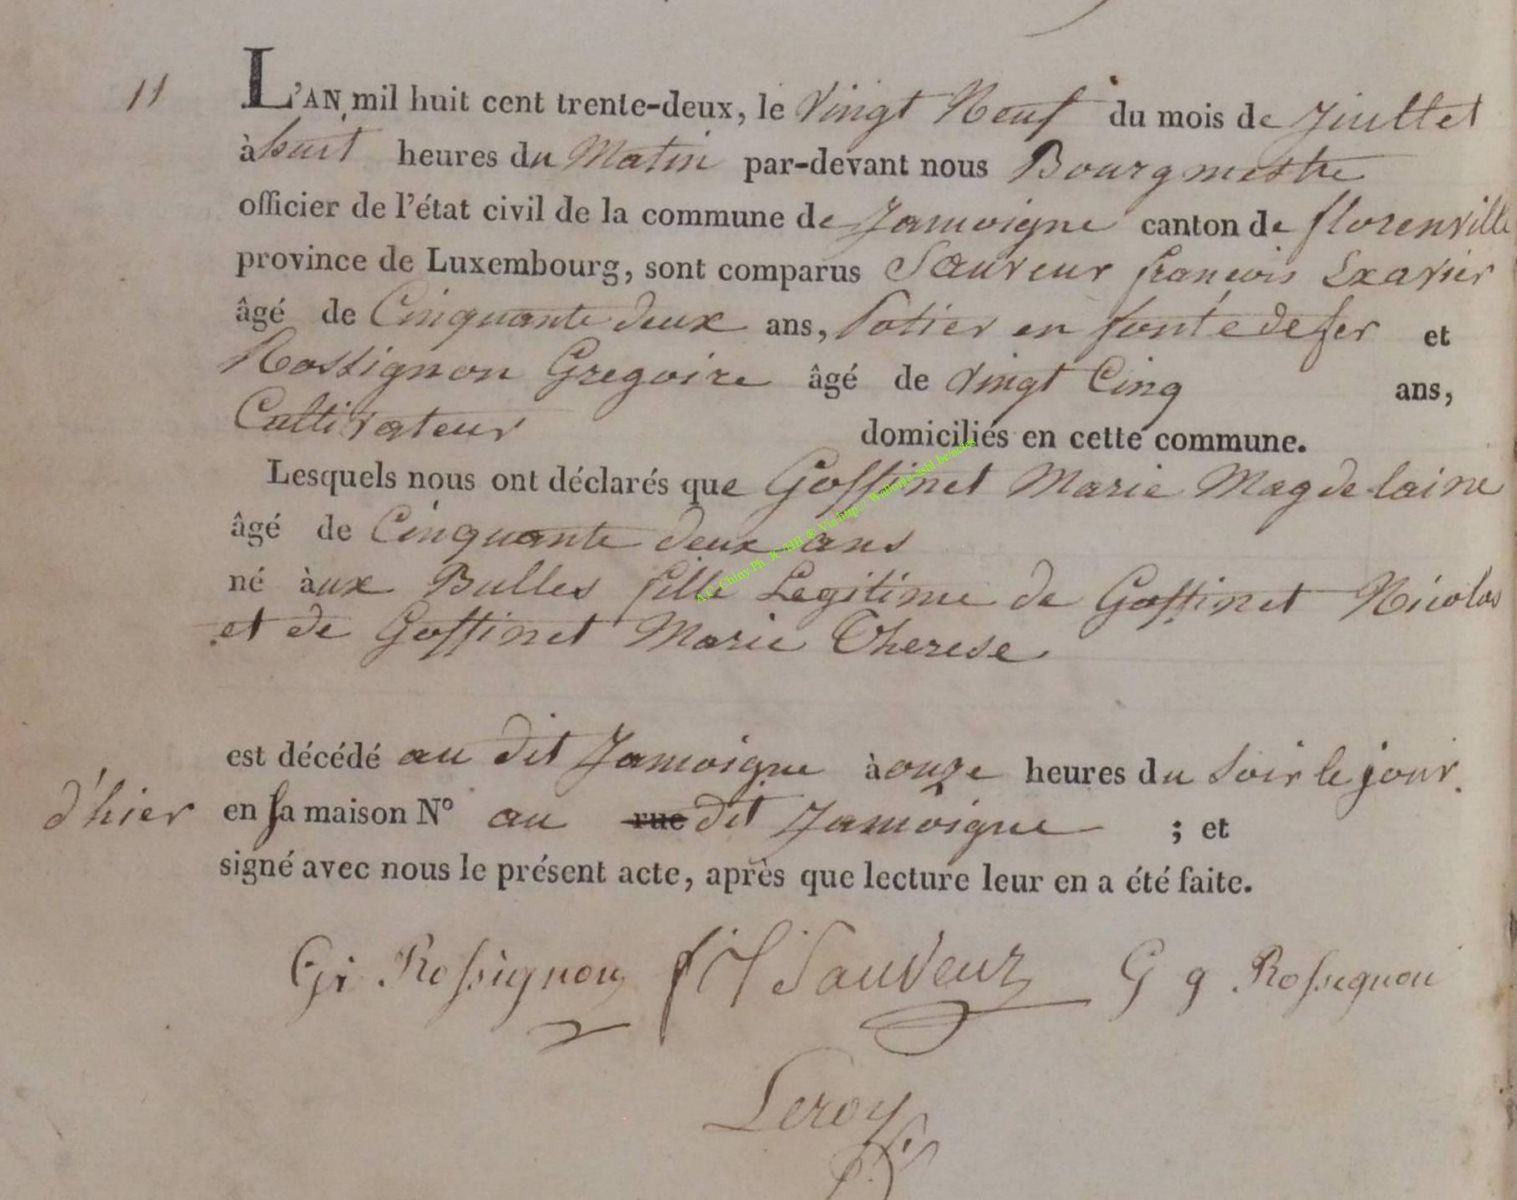 11 L'AN mil huit cent trente-deux, le Vingt Neuf du mois de Juillet
à huit heures du Matin par-devant nous Bourgmestre
officier de l'état civil de la commune de Jamoigne canton de florenville
province de Luxembourg, sont comparus Sauveur françois Exavier
âgé de Cinquante deux ans, Potier en fonte de fer et
Rossignon Gregoire âgé de Vingt Cinq ans,
Cultivateur domiciliés en cette commune.
Lesquels nous ont déclarés que Goffinet Marie Magdelaine
âgé de Cinquante deux ans
né àux Bulles fille Legitime de Goffinet Nicolas
et de Goffinet Marie Therese
est décédé au dit Jamoigne à onze heures du Soir le jour
d'hier en sa maison N° au rue dit Jamoigne ; et
signé avec nous le présent acte, après que lecture leur en a été faite.
Gi Rossignon Sauveur G g Rossignon
Leroy